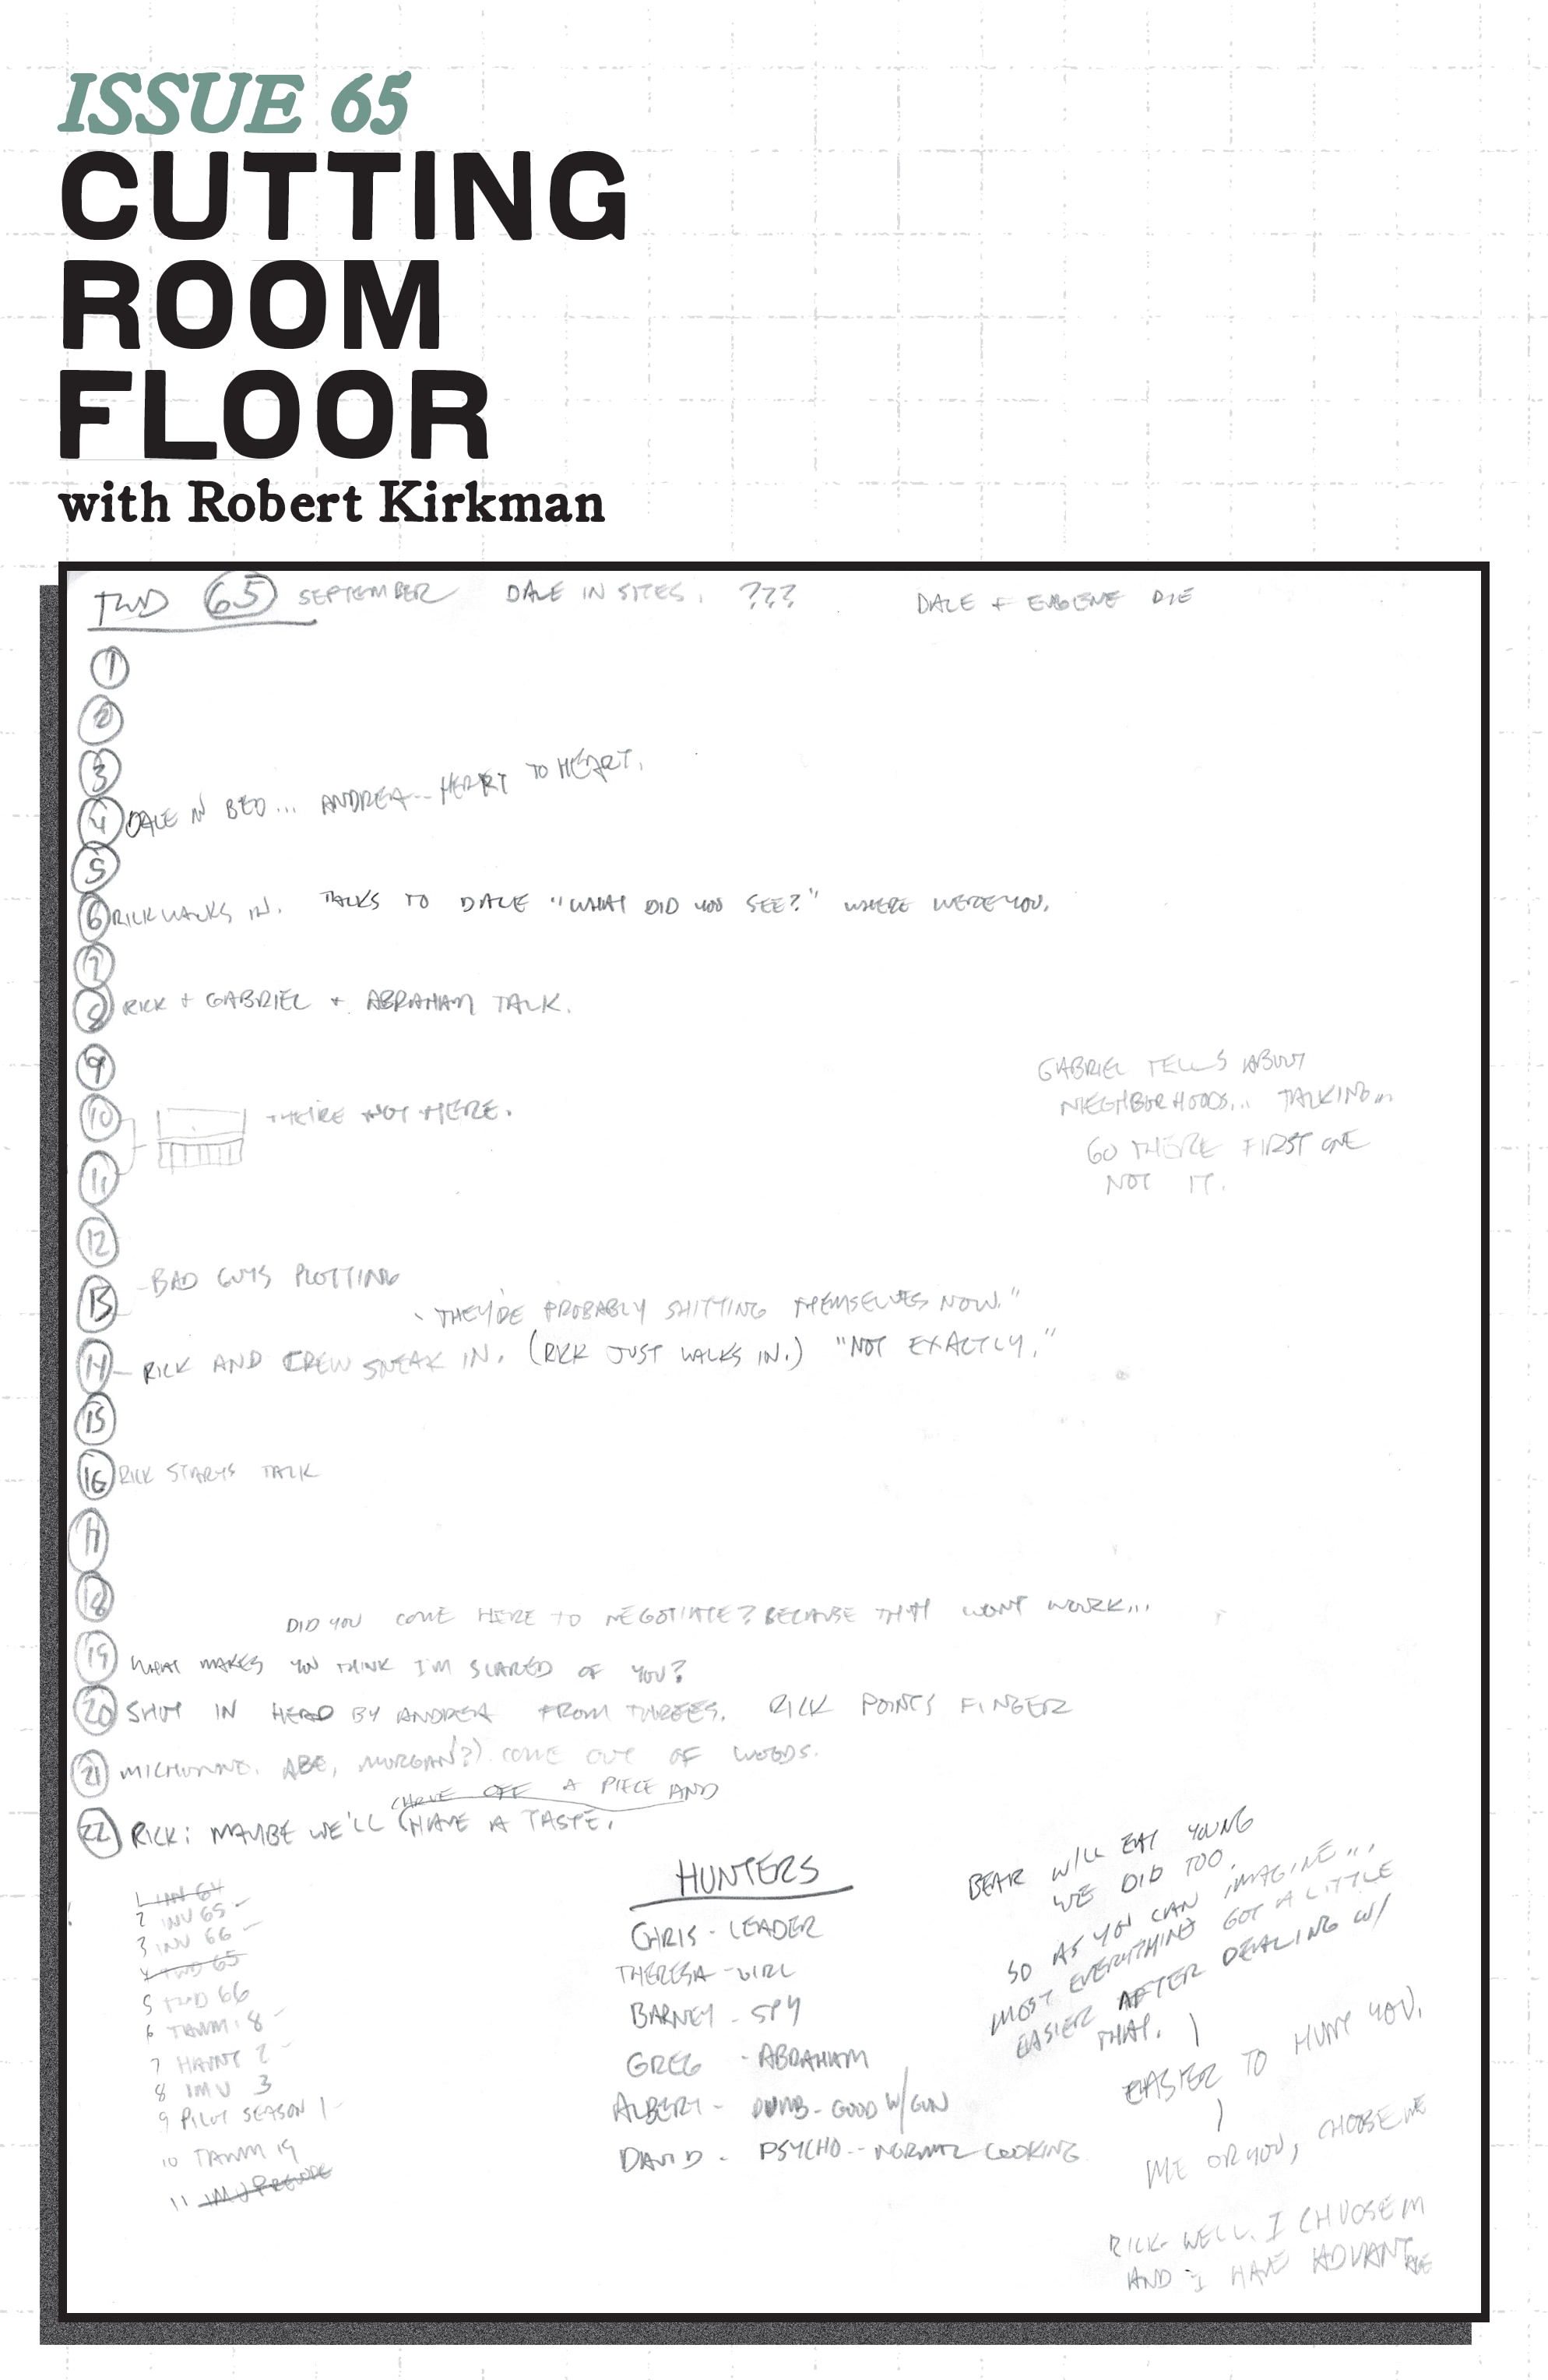 ISSUE 65
CUTTING
ROOM
FLOOR
with Robert Kirkman
TWD 65 SEPTEMBER DALE IN SITES. ??? DALE + EUGENE DIE
1
2
3
4 DALE IN BED... ANDREA-- HEART TO HEART.
5
6 RICK WALKS IN. TALKS TO DALE "WHAT DID YOU SEE?" WHERE WERE YOU.
7
8 RICK + GABRIEL + ABRAHAM TALK.
9
GABRIEL TELLS ABOUT
NIEGHBORHOODS... TALKING...
GO THERE FIRST ONE
NOT IT.
10 THEIRE NOT HERE.
11
12
-BAD GUYS PLOTTING
13 "THEY'RE PROBABLY SHITTING THEMSELVES NOW."
14 - RICK AND CREW SNEAK IN. (RICK JUST WALKS IN.) "NOT EXACTLY."
15
16 RICK STARTS TALK
17
18
DID YOU COME HERE TO NEGOTIATE? BECAUSE THAT WONT WORK...
19 WHAT MAKES YOU THINK I'M SCARED OF YOU?
20 SHOT IN HEAD BY ANDREA FROM THREES. RICK POINTS FINGER
21 MICHONNE, ABE, MORGAN?) COME OUT OF WOODS.
CARVE OFF A PIECE AND
22 RICK: MAYBE WE'LL HAVE A TASTE.
1 INV 64
2 INV 65 -
3 INV 66 -
4 TWD 65
5 TWD 66
6 TAWM 18 -
7 HAUNT 2 -
8 IMU 3
9 PILOT SEASON 1 -
10 TAWM 19
11
HUNTERS
CHRIS - LEADER
THERESA - GIRL
BARNEY - SPY
GREG - ABRAHAM
ALBERT - DUMB - GOOD W/ GUN
DAVID - PSYCHO -- NORMAL LOOKING
BEAR WILL EAT YOUNG
WE DID TOO.
SO AS YOU CAN IMAGINE...
MOST EVERYTHING GOT A LITTLE
EASIER AFTER DEALING W/
THAT.
EASIER TO HUNT YOU.
ME OR YOU, CHOOSE ME
RICK- WELL, I CHOOSE M
AND I HAVE ADVANTAGE